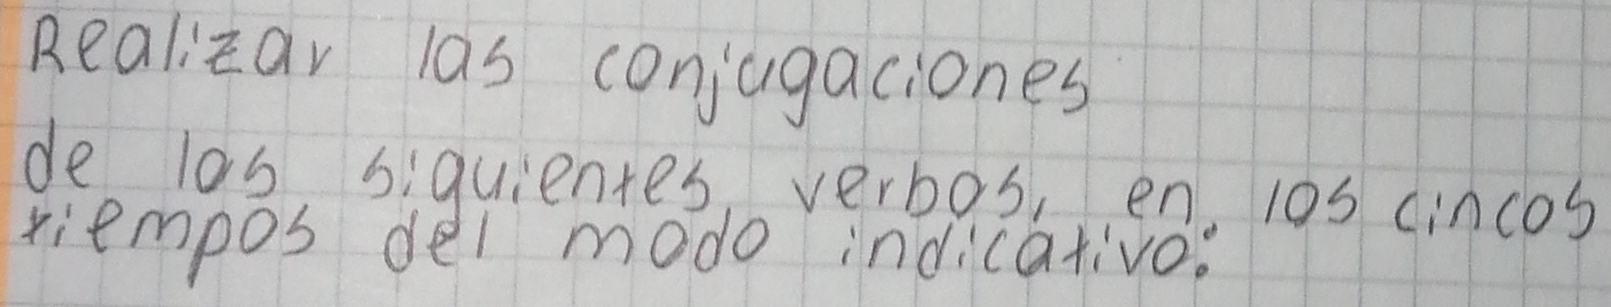 Realizar las conjugaciones
de los siguientes verbos, en los cincos
tiempos del modo indicativo: